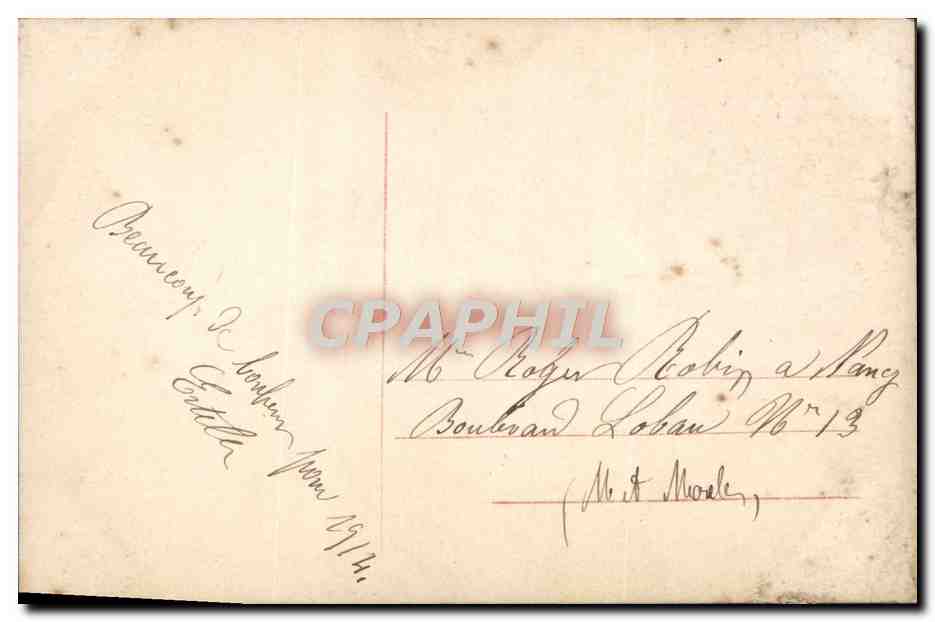 Beaucoup de bonheur pour 1914.
Estelle
CPAPHIL
Mr Roger Robin a Nancy
Boulevard Lobau Nr 13
(M et Moselle)